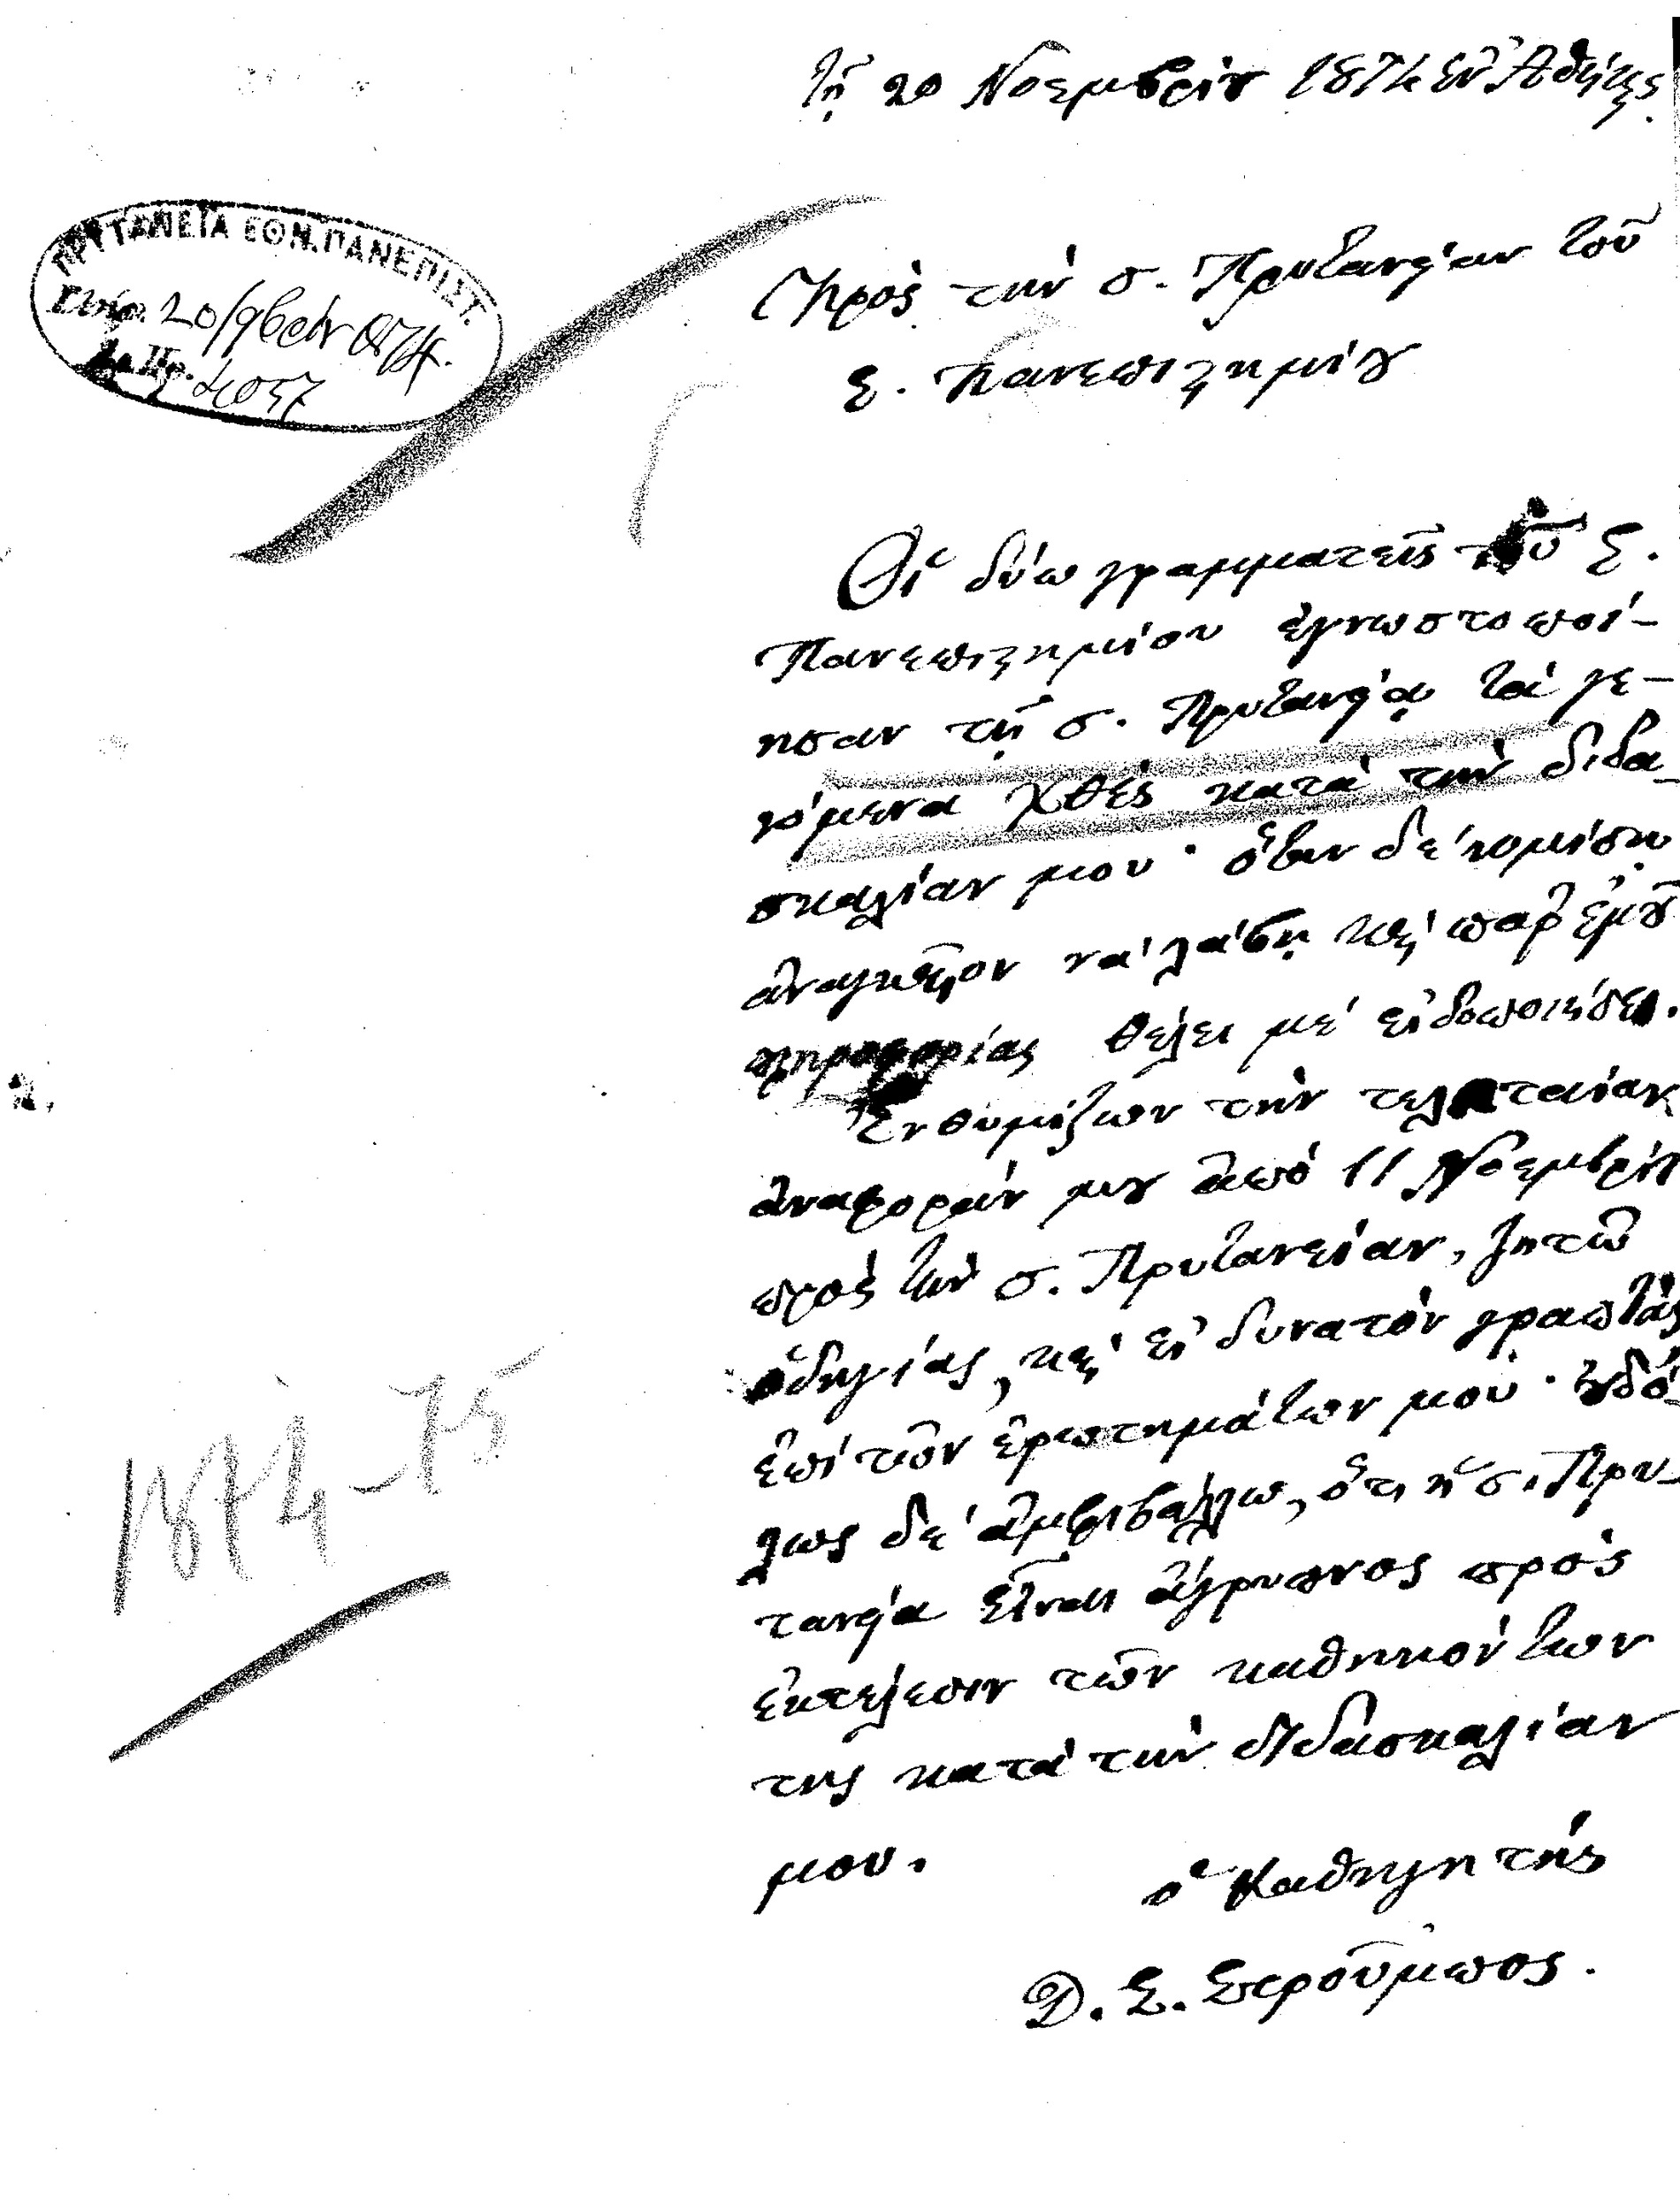 Τῇ 20 Νοεμβρίου 1874 ἐν Ἀθήναις
ΠΡΥΤΑΝΕΙΑ ΕΘΝ. ΠΑΝΕΠΙΣΤ.
20/9βρίου 874.
Πρὸς τὴν σ. Πρυτανείαν τοῦ
ἐ. Πανεπιστημίου
Οἱ δύω γραμματεῖς τοῦ ἐ.
Πανεπιστημίου ἐγνωστοποί-
ησαν τῇ σ. Πρυτανείᾳ τὰ γε-
νόμενα χθὲς κατὰ τὴν διδα-
σκαλίαν μου· ὅταν δὲ νομίσῃ
ἀναγκαῖον νὰ λάβῃ καὶ παρ' ἐμοῦ
πληροφορίας θέλει μὲ εἰδοποιήσει.
Ἐνθυμίζων τὴν τελευταίαν
ἀναφοράν μου ἀπὸ 11 Νοεμβρίου
πρὸς τὴν σ. Πρυτανείαν, ζητῶ
ὁδηγίας, καὶ εἰ δυνατὸν γραπτὰς
ἐπὶ τῶν ἐρωτημάτων μου· οὐδό-
λως δὲ ἀμφιβάλλω, ὅτι ἡ σ. Πρυ-
τανεία εἶναι ἄγρυπνος πρὸς
ἐκτέλεσιν τῶν καθηκόντων
της κατὰ τὴν διδασκαλίαν
μου.
ὁ Καθηγητής
Δ. Σ. Στρούμπος.
1874-75